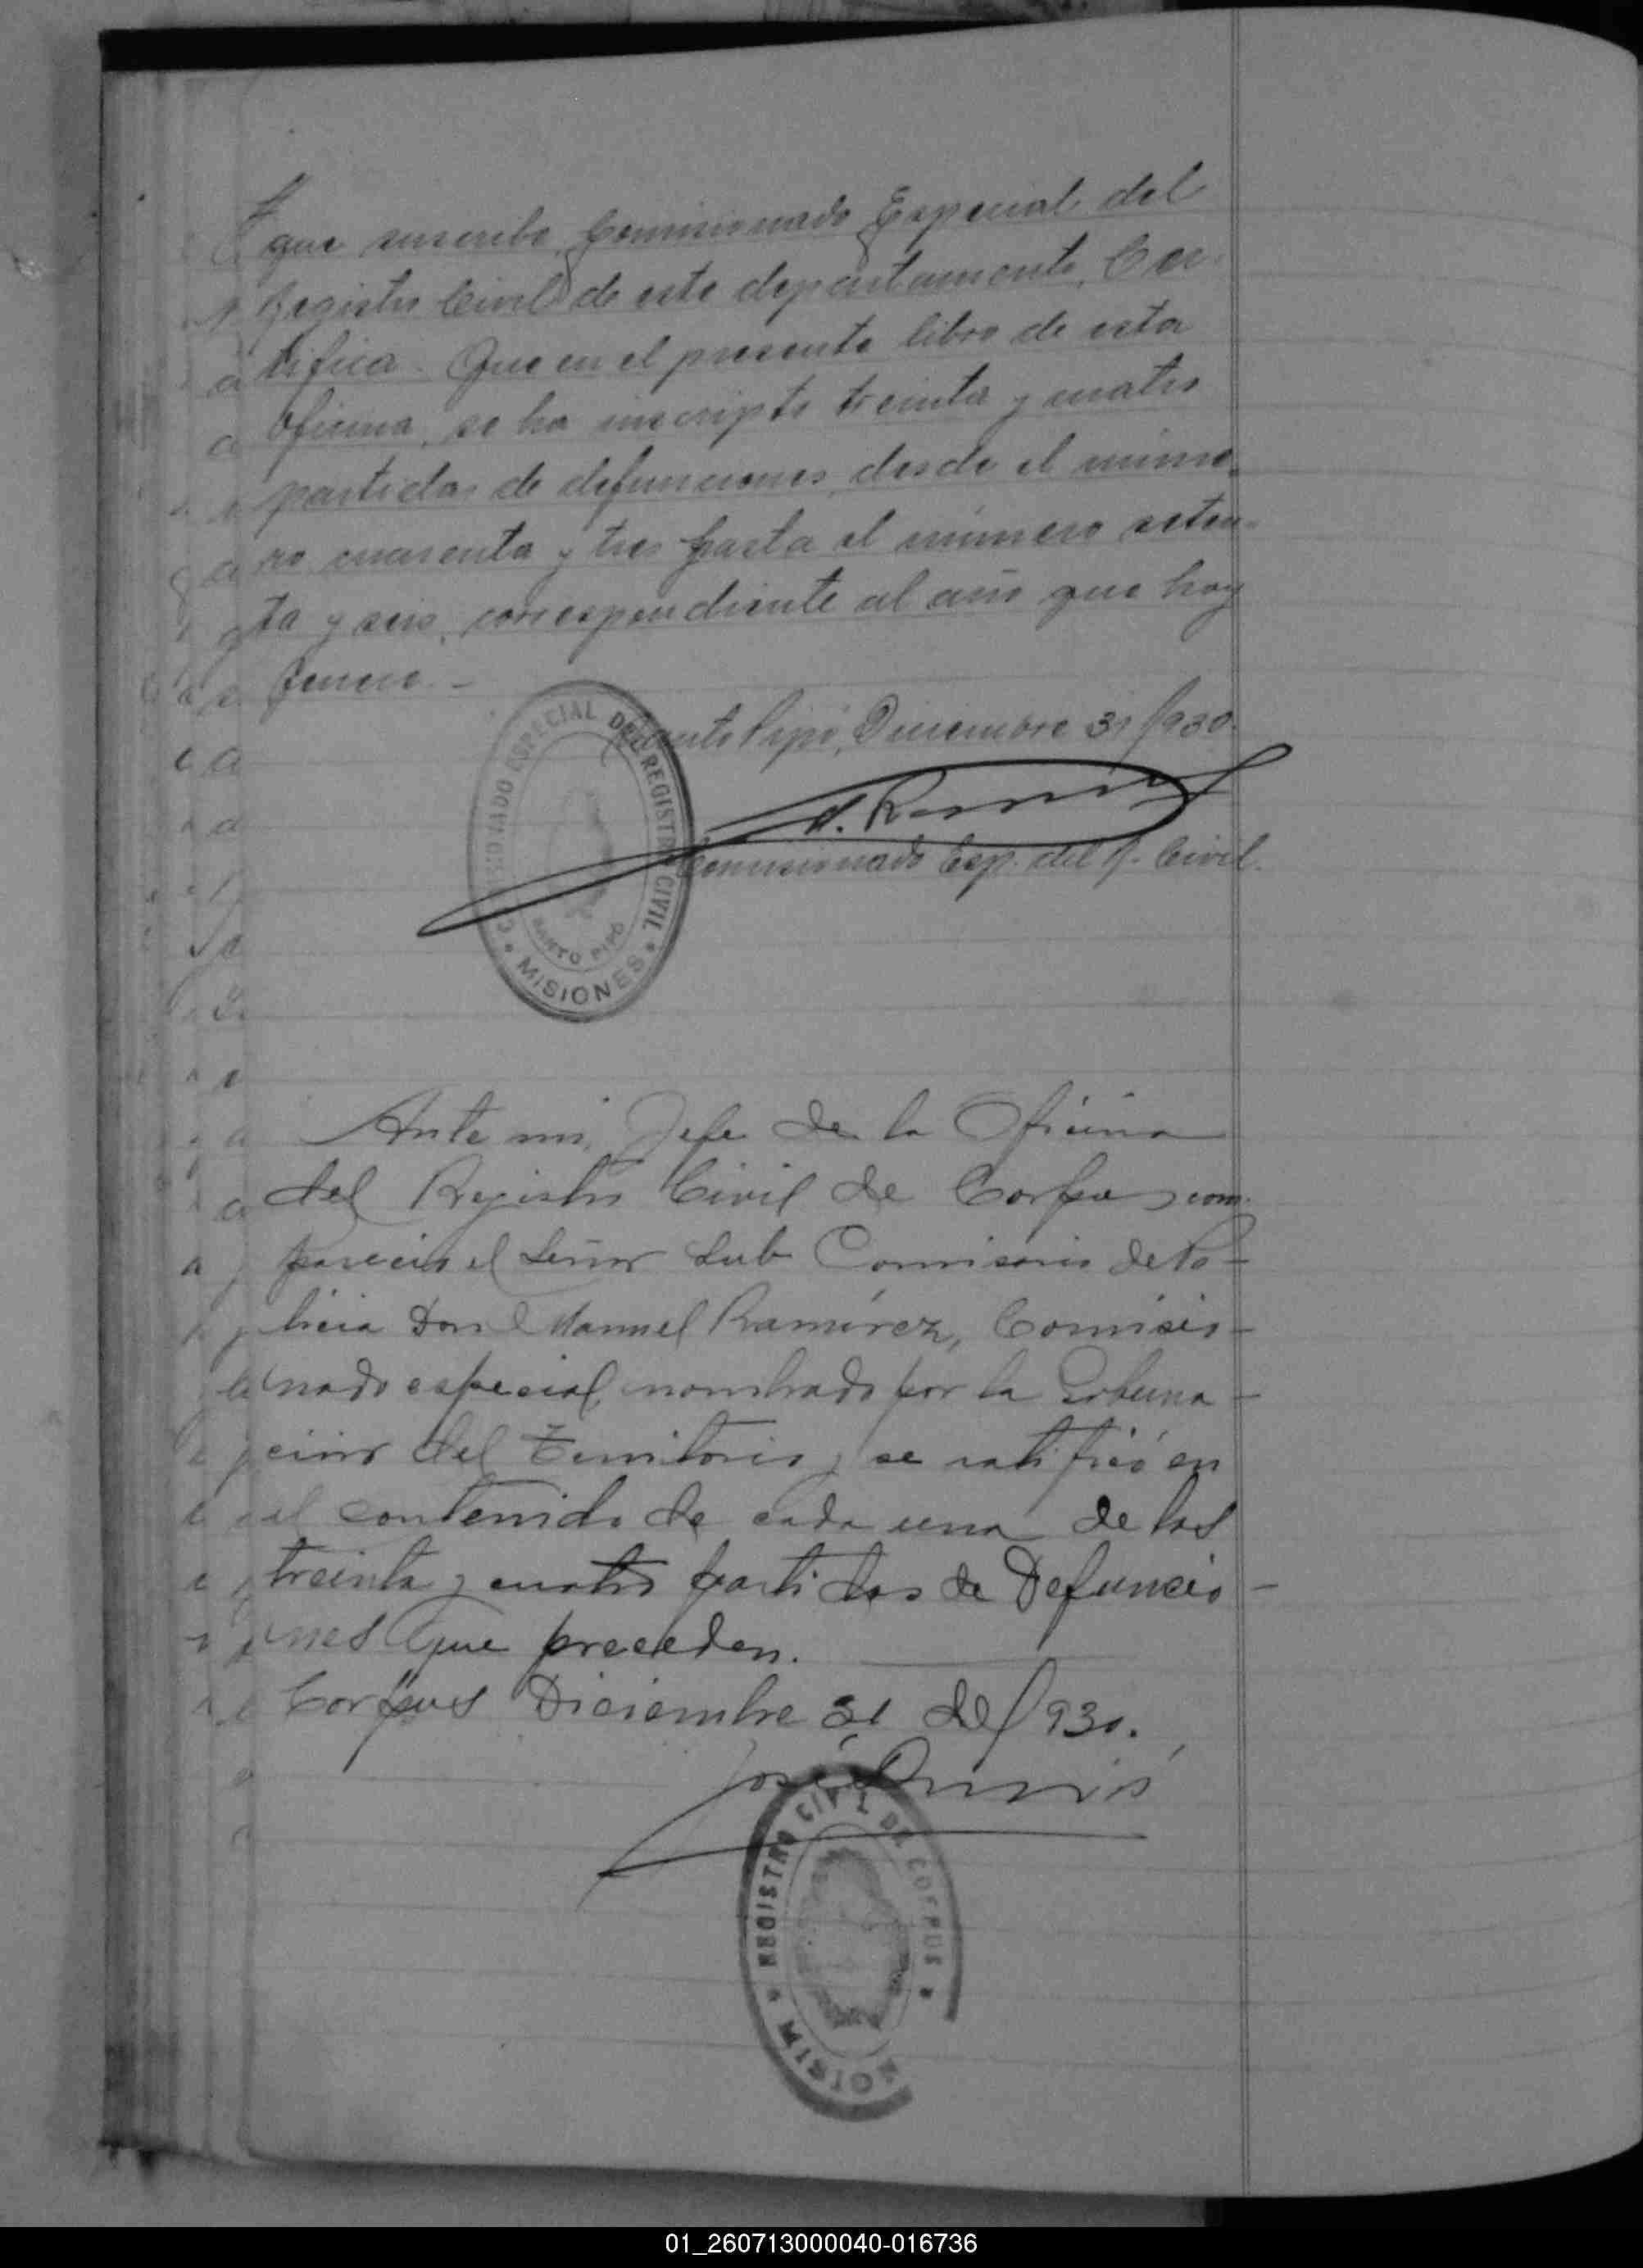 que suscribe, Comisionado Especial del
Registro Civil de este departamento, Cer-
tifica. Que en el presente libro de esta
Oficina, se ha inscripto treinta y cuatro
partidas de defunciones, desde el núme-
ro cuarenta y tres hasta el número seten-
ta y seis, correspondiente al año que hoy
fenece.-
Santo Pipó, Diciembre 31/930.
Comisionado Esp. del R. Civil.
COMISIONADO ESPECIAL DEL REGISTRO CIVIL
SANTO PIPÓ
* MISIONES *
Ante mi, Jefe de la Oficina
del Registro Civil de Corpus com-
pareció el Señor Sub Comisario de Po-
licia Don Manuel Ramírez, Comisio-
nado especial nombrado por la Goberna-
cion del Territorio y se ratificó en
el contenido de cada una de las
treinta y cuatro partidas de Defuncio-
nes que preceden.
Corpus Diciembre 31 de/930.
José
REGISTRO CIVIL DE CORPUS
* MISION
01_260713000040-016736